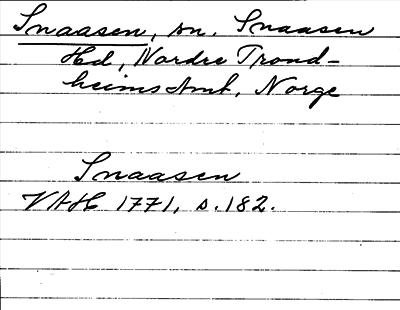 Snaasen, sn. Snaasen
Hd, Nordre Trond-
heims Amt, Norge
Snaasen
VAH 1771, s. 182.